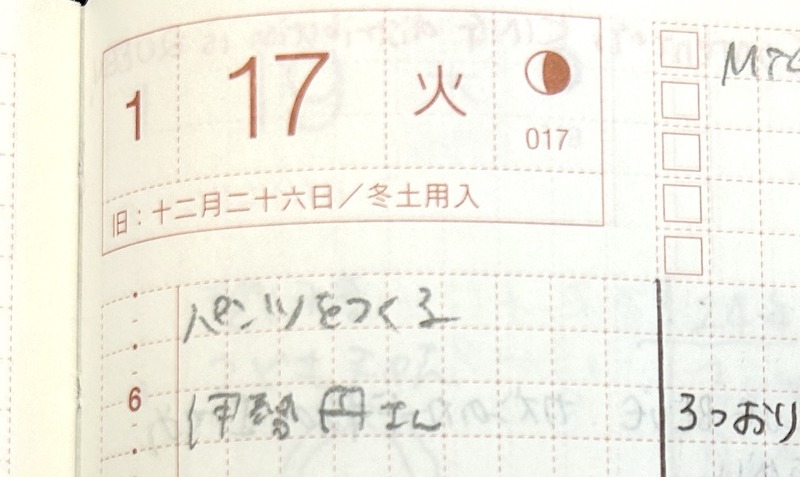 1 17 火
017
旧：十二月二十六日／冬土用入
パンツをつくる
6
伊勢丹さん
3つおり